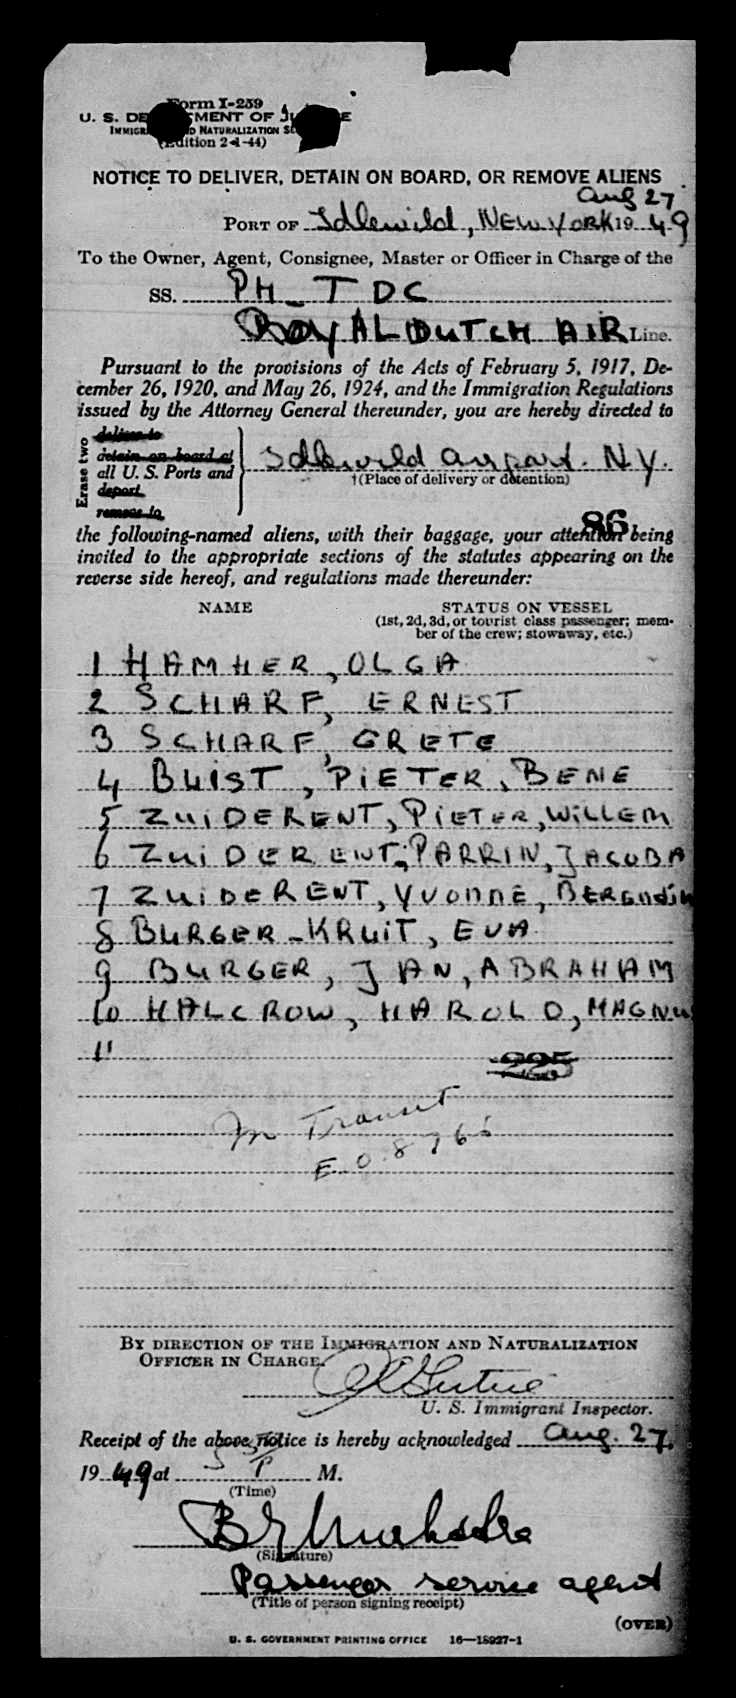 Form I-259
U. S. DEPARTMENT OF JUSTICE
IMMIGRATION AND NATURALIZATION SERVICE
(Edition 2-1-44)
NOTICE TO DELIVER, DETAIN ON BOARD, OR REMOVE ALIENS
Aug 27
PORT OF Idlewild, NEW YORK 19 49
To the Owner, Agent, Consignee, Master or Officer in Charge of the
SS. PH-TDC
ROYAL DUTCH AIR Line.
Pursuant to the provisions of the Acts of February 5, 1917, De-
cember 26, 1920, and May 26, 1924, and the Immigration Regulations
issued by the Attorney General thereunder, you are hereby directed to
Erase two
deliver to
detain on board at
all U. S. Ports and
deport
remove to
Idlewild Airport. N.Y.
†(Place of delivery or detention)
86
the following-named aliens, with their baggage, your attention being
invited to the appropriate sections of the statutes appearing on the
reverse side hereof, and regulations made thereunder:
NAME STATUS ON VESSEL
(1st, 2d, 3d, or tourist class passenger; mem-
ber of the crew; stowaway, etc.)
1 HAMHER, OLGA
2 SCHARF, ERNEST
3 SCHARF, GRETE
4 BUIST, PIETER, BENE
5 ZUIDERENT, PIETER, WILLEM
6 ZUIDERENT, PARRIN, JACOBA
7 ZUIDERENT, YVONNE,
8 BURGER-KRUIT, EVA
9 BURGER, JAN, ABRAHAM
10 HALCROW, HAROLD, MAGNUS
11
225
In Transit
E.O. 8766
BY DIRECTION OF THE IMMIGRATION AND NATURALIZATION
OFFICER IN CHARGE.
U. S. Immigrant Inspector.
Receipt of the above notice is hereby acknowledged Aug. 27,
19 49 at 5 P M.
(Time)
(Signature)
Passenger service agent
(Title of person signing receipt)
(OVER)
U. S. GOVERNMENT PRINTING OFFICE 16—18927-1